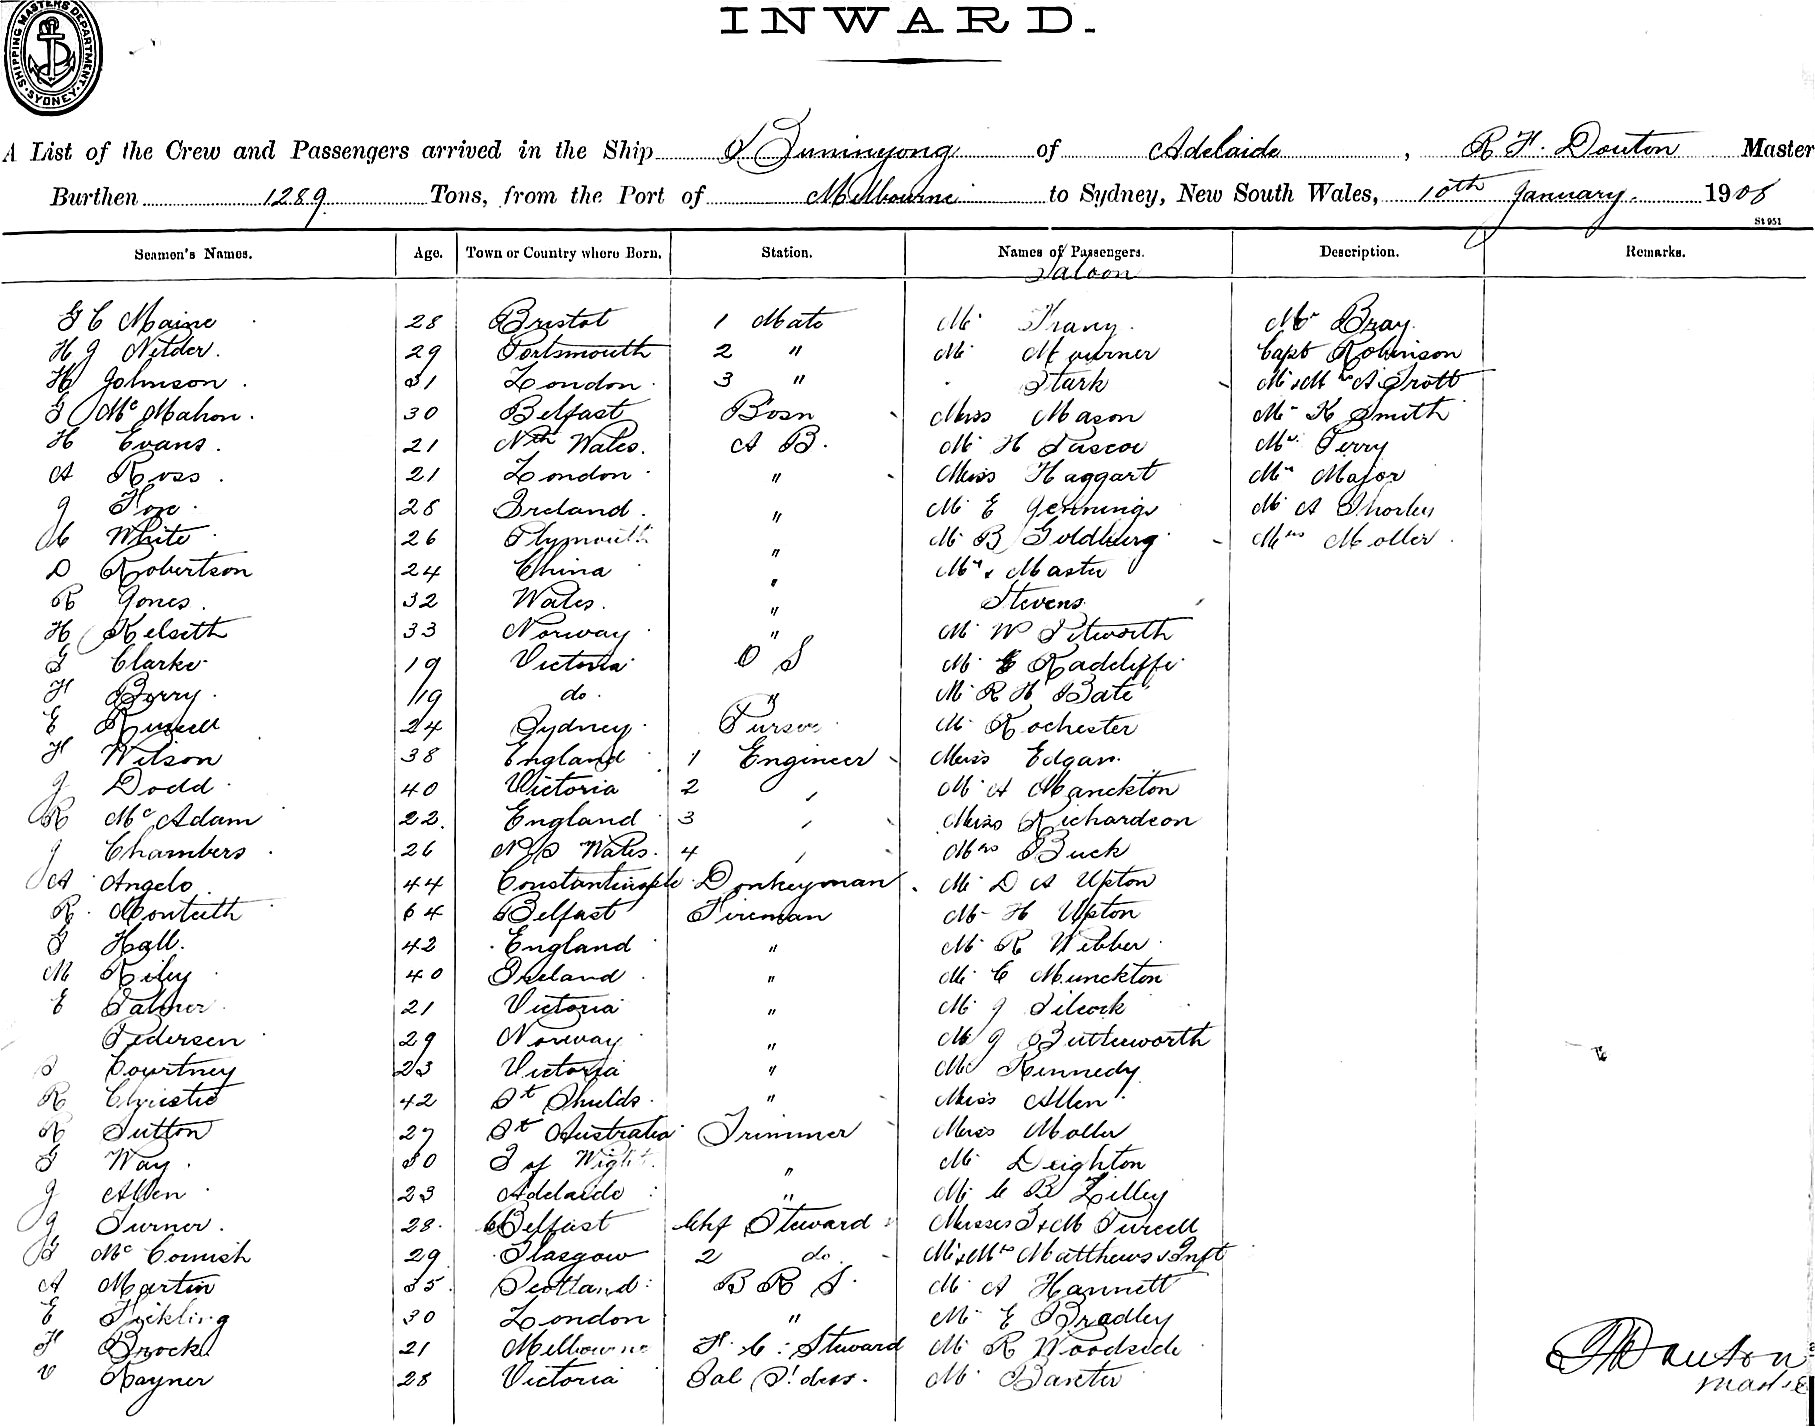 SHIPPING MASTERS DEPARTMENT
SYDNEY
INWARD.
A List of the Crew and Passengers arrived in the Ship Buninyong of Adelaide, R H. Douton Master
Burthen 1289 Tons, from the Port of Melbourne to Sydney, New South Wales, 10th January. 1908
St 951
Seamen's Names. Age. Town or Country where Born. Station. Names of Passengers. Description. Remarks.
Saloon
G C Maine 28 Bristol 1 Mate Mr Mr Bray.
H J 29 Portsmouth 2 " Mr Mourner Capt Robinson
H Johnson. 31 London. 3 " Stark Mr & Mrs A Trott
Mc Mahon. 30 Belfast Bosn Miss Mason Mr K Smith
H Evans. 21 Nth Wales. A B. Mr H Pascoe Mr Perry
A Ross. 21 London " Miss Haggart Mr Major
J Fox. 28 Ireland. " Mr E Jennings Mr A Thorley
White 26 Plymouth " Mr B Goldberg Mrs Moller
D Robertson 24 China " Mrs & Master
R Jones. 32 Wales. " Stevens
H Kelseth 33 Norway " Mr W Pitworth
G Clarke 19 Victoria O S Mr Radcliffe
H Berry. 19 do. " Mr R H Bate
E Russell 24 Sydney Purser Mr Rochester
H Wilson 38 England 1 Engineer Miss Edgar.
J Dodd 40 Victoria 2 , Mr A Manckton
R Mc Adam 22. England 3 , Miss Richardson
J Chambers 26 N S Wales. 4 , Mrs Buck
A Angelo 44 Constantinople Donkeyman Mr D A Upton
R. Monteith 64 Belfast Fireman Mr H Upton
Hall. 42 England " Mr R Webber
M Riley 40 Ireland " Mr C Munckton
E Palmer 21 Victoria " Mr J Silcock
Pedersen 29 Norway " Mr J Butterworth
Courtney 23 Victoria " Mr Kennedy
R Christie 42 Sth Shields. " Miss Allen
R Sutton 27 Sth Australia Trimmer Miss Moller
G Way. 30 I of Wight. " Mr Deighton
J Allen 23 Adelaide " Mr C B Lilley
J Turner. 28. Belfast Chf Steward Misses I & M Purcell
Mc Cornish 29 Glasgow 2 do Mr & Mrs Matthews & Inft
A Martin 35. Scotland B R S. Mr A Hannett
E Tickling 30 London " Mr E Bradley
H Brock 21 Melbourne F. C: Steward Mr R Woodside
V Rayner 28 Victoria Sal St'dess. Mr Baxter
R H Douton
Master